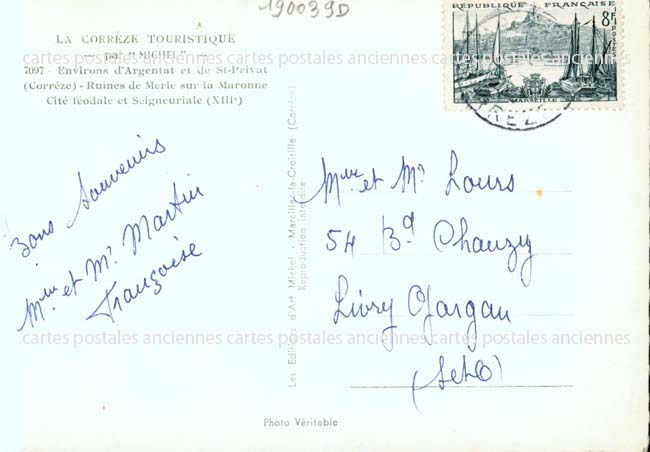 190039D
LA CORRÈZE TOURISTIQUE
— par "MICHEL" —
7097 - Environs d'Argentat et de St-Privat
(Corrèze) - Ruines de Merle sur la Maronne
Cité féodale et Seigneuriale (XIIIe)
RÉPUBLIQUE FRANÇAISE
8F
POSTES
MARSEILLE
REZE
cartes postales anciennes cartes postales anciennes cartes postales anciennes
Bons Souvenirs
Mme et Mr Martin
Françoise
Les Editions d'Art Michel - Marcillac-la-Croisille (Corrèze)
Reproduction interdite
Mme et Mr Lours
54 Bd Chanzy
Livry Gargan
(SetO)
cartes postales anciennes cartes postales anciennes cartes postales anciennes
Photo Véritable